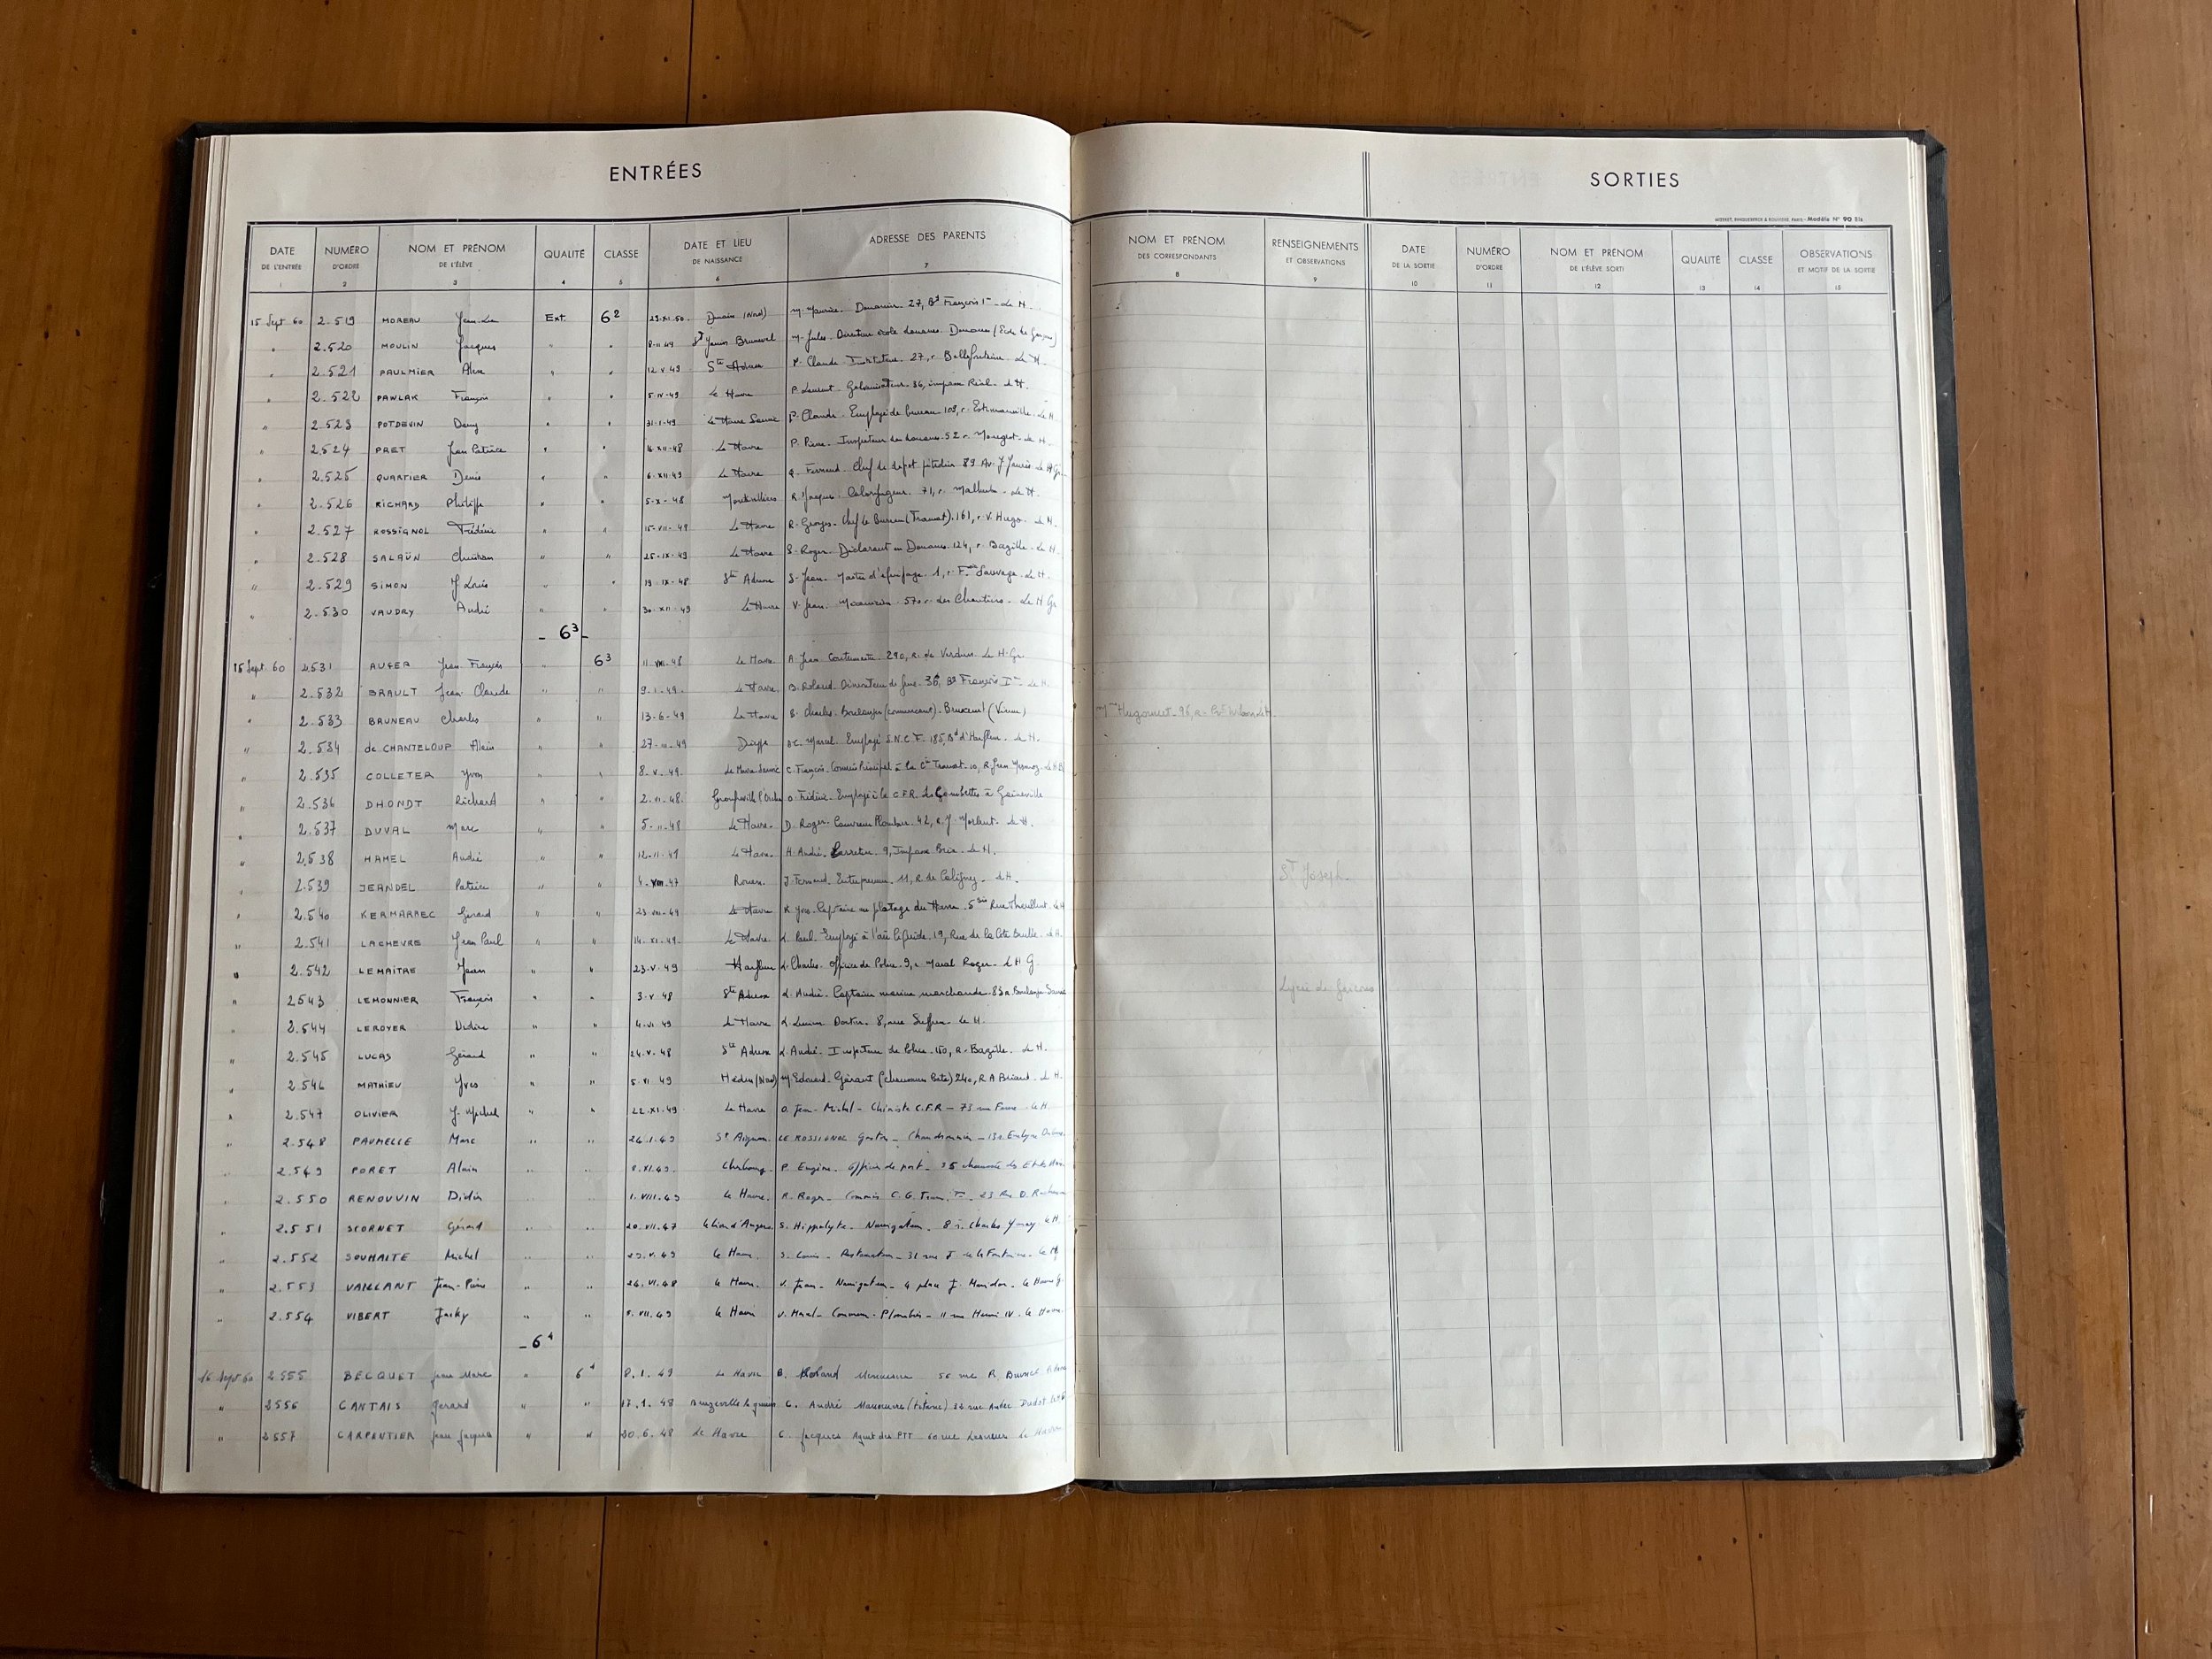 ENTRÉES
DATE DE L'ENTRÉE 1 NUMÉRO D'ORDRE 2 NOM ET PRÉNOM DE L'ÉLÈVE 3 QUALITÉ 4 CLASSE 5 DATE ET LIEU DE NAISSANCE 6 ADRESSE DES PARENTS 7
15 Sept 60 2.519 MOREAU Ext. 6² 23.XI.50 (Nord) M. Maurice. Douanier. 27, Bd François 1er. Le H.
" 2.520 MOULIN Jacques " " 8.11.49 St Jouin Bruneval M. Jules. Directeur école
" 2.521 PAULMIER Alex " " 12.V.49 Ste Adresse P. Claude. Instituteur. 27, r. Bellefontaine. Le H.
" 2.522 PAWLAK François " " 5.IV.49 Le Havre P. Laurent. 36, impasse Réal. Le H.
" 2.523 POTDEVIN Dany " " 31.1.49 Le Havre Sanvic P. Claude. Employé de bureau. 109, r. Estimauville. Le H
" 2.524 PRET Jean Patrice " " 16.XII.48 Le Havre P. Pierre. Inspecteur des douanes. 52 r. Le H.
" 2.525 QUARTIER Denis " " 6.XII.49 Le Havre Q. Fernand. Chef de dépôt 89 Av. J Jaurès. Le H Gr.
" 2.526 RICHARD Philippe " " 5.X.48 Montivilliers R. Jacques. Calorifugeur. 71, r. Malherbe. Le H.
" 2.527 ROSSIGNOL Frédéric " " 15.VII.49 Le Havre R. Georges. Chef de Bureau (Transat). 161, r. V. Hugo. Le H.
" 2.528 SALAÜN Christian " " 25.IX.49 Le Havre S. Roger. Déclarant en Douane. 124, r. Bazille. Le H.
" 2.529 SIMON J Louis " " 19.IX.48 Ste Adresse S. Jean. Maître d'équipage. 1, r. Fric Sauvage. Le H.
" 2.530 VAUDRY André " " 30.XII.49 Le Havre V. Jean. 570 r. des Chantiers. Le H Gr
- 6³ -
15 Sept. 60 2.531 AUGER Jean François " 6³ 11.VIII.48 Le Havre A. Jean. Contremaître. 290, R. de Verdun. Le H. Gr.
" 2.532 BRAULT Jean Claude " " 9.1.49. Le Havre B. Roland. 36, Bd François Ier. Le H.
" 2.533 BRUNEAU Charles " " 13-6-49 Le Havre B. Charles. Boulanger (commerçant). (Vienne)
" 2.534 de CHANTELOUP Alain " " 27.11.49 Dieppe de C. Marcel. Employé S.N.C.F. 185, Bd d'Harfleur. Le H.
" 2.535 COLLETER Yvon " " 8.V.49. Le Havre Sanvic C. François. Commis Principal à la Cie Transat. 10, R. Jean Mermoz.
" 2.536 DHONDT Richard " " 2.11.48. D. Frédéric. Employé à la C.F.R. à Gaineville
" 2.537 DUVAL Marc " " 5.11.48 Le Havre. D. Roger. Couvreur Plombier. 42, R. J. Morlent. Le H.
" 2.538 HAMEL André " " Le Havre H. André. 9, Impasse Le H.
" 2.539 JEANDEL Patrice " " 4.VIII.47 Rouen. J. Fernand. Entrepreneur. 11, R. de Coligny. Le H.
" 2.540 KERMARREC Gérard " " 23.VII.49 Le Havre K. Yves. Capitaine au pilotage du Havre. 5 bis Rue
" 2.541 LACHEVRE Jean Paul " " 14.XI.49. Le Havre. L. Paul. Employé à l'air liquide. 19, Rue de la Cote Brulée. Le H.
" 2.542 LEMAITRE Jean " " 23.V.49 Harfleur L. Charles. Officier de Police. 9, r. Marcel Roger. Le H G.
" 2543 LEMONNIER François " " 3.V.48 Ste Adresse L. André. Capitaine marine marchande. 83
" 2.544 LEROYER Didier " " 4.VI.49 Le Havre L. Lucien. Docteur. 8, rue Suffren. Le H.
" 2.545 LUCAS Gérard " " 24.V.48 Ste Adresse L. André. Inspecteur de Police. 150, R. Bazille. Le H.
" 2.546 MATHIEU Yves " " 5.VI.49 M. Edouard. Gérant 240, R. A Briand. Le H.
" 2.547 OLIVIER J. Michel " " 22.XI.49 Le Havre O. Jean-Michel - Chimiste C.F.R - 73 rue Faure - Le H.
" 2.548 PAUMELLE Marc " " 26.1.49 St Aignan. LE ROSSIGNOL Gaston - Chaudronnier - 13
" 2.549 PORET Alain " " 8.XI.49. Cherbourg P. Eugène. Officier de port. 35 chaussée des Etats Unis.
" 2.550 RENOUVIN Didier " " 1.VIII.49 Le Havre. R. Roger - Commis C.G. Trans. T. 23 Rue
" 2.551 SCORNET Gérard " " 20.VII.47 Le Lion d'Angers S. Hippolyte. Navigateur. 8 r. Charles
" 2.552 SOUHAITE Michel " " 29.V.49 Le Havre. S. Louis - 31 rue J de la Fontaine. Le H.
" 2.553 VAILLANT Jean-Pierre " " 26.VI.48 Le Havre. V. Jean - Navigateur - 4 place J. Le Havre G.
" 2.554 VIBERT Jacky " " 5.VII.49 Le Havre V. Marcel - Couvreur-Plombier - 11 rue Henri IV. Le Havre.
- 6⁴
16 Sept 60 2.555 BECQUET Jean Marc " 6⁴ 8.1.49 Le Havre B. Roland 56 rue R
" 2556 CANTAIS Gerard " " 17.1.48 C. André Manoeuvre 32 rue
" 2557 CARPENTIER Jean Jacques " " 20.6.48 Le Havre C. Jacques Agent des PTT 60 rue Lesueur Le Havre
SORTIES
Modèle N° 90 Bis
NOM ET PRÉNOM DES CORRESPONDANTS 8 RENSEIGNEMENTS ET OBSERVATIONS 9 DATE DE LA SORTIE 10 NUMÉRO D'ORDRE 11 NOM ET PRÉNOM DE L'ÉLÈVE SORTI 12 QUALITÉ 13 CLASSE 14 OBSERVATIONS ET MOTIF DE LA SORTIE 15
Mme
St Joseph
Lycée de Garçons